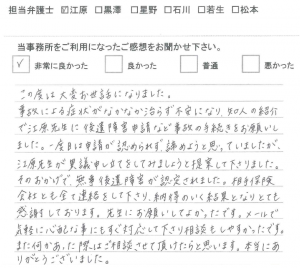 担当弁護士 ☑江原 □黒澤 □星野 □石川 □若生 □松本
当事務所をご利用になったご感想をお聞かせ下さい。
✓ 非常に良かった □ 良かった □ 普通 □ 悪かった
この度は大変お世話になりました。
事故による症状がなかなか治らず不安になり、知人の紹介
で江原先生に後遺障害申請など事故の手続きをお願いし
ました。一度目は申請が認められず諦めようと思っていましたが、
江原先生が異議申し立てをしてみましょうと提案して下さりました。
そのおかげで、無事後遺障害が認定されました。相手保険
会社とも全て連絡をして下さり、納得のいく結果となりとても
感謝しております。先生にお願いしてよかったです。メールで
気軽に心配な事にもすぐ対応して下さり相談もしやすかったです。
また何かあった際はご相談させて頂けたらと思います。本当にあ
りがとうございました。